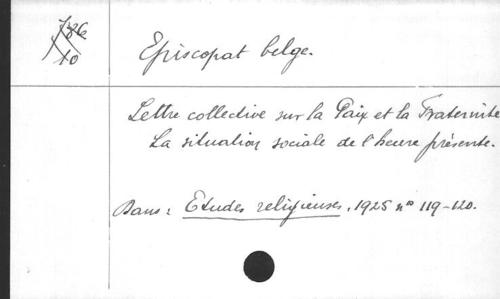 Episcopat belge.
Lettre collective sur la Paix et la Fraternité
La situation sociale de l'heure présente.
Dans : Etudes religieuses, 1925 nos 119-120.